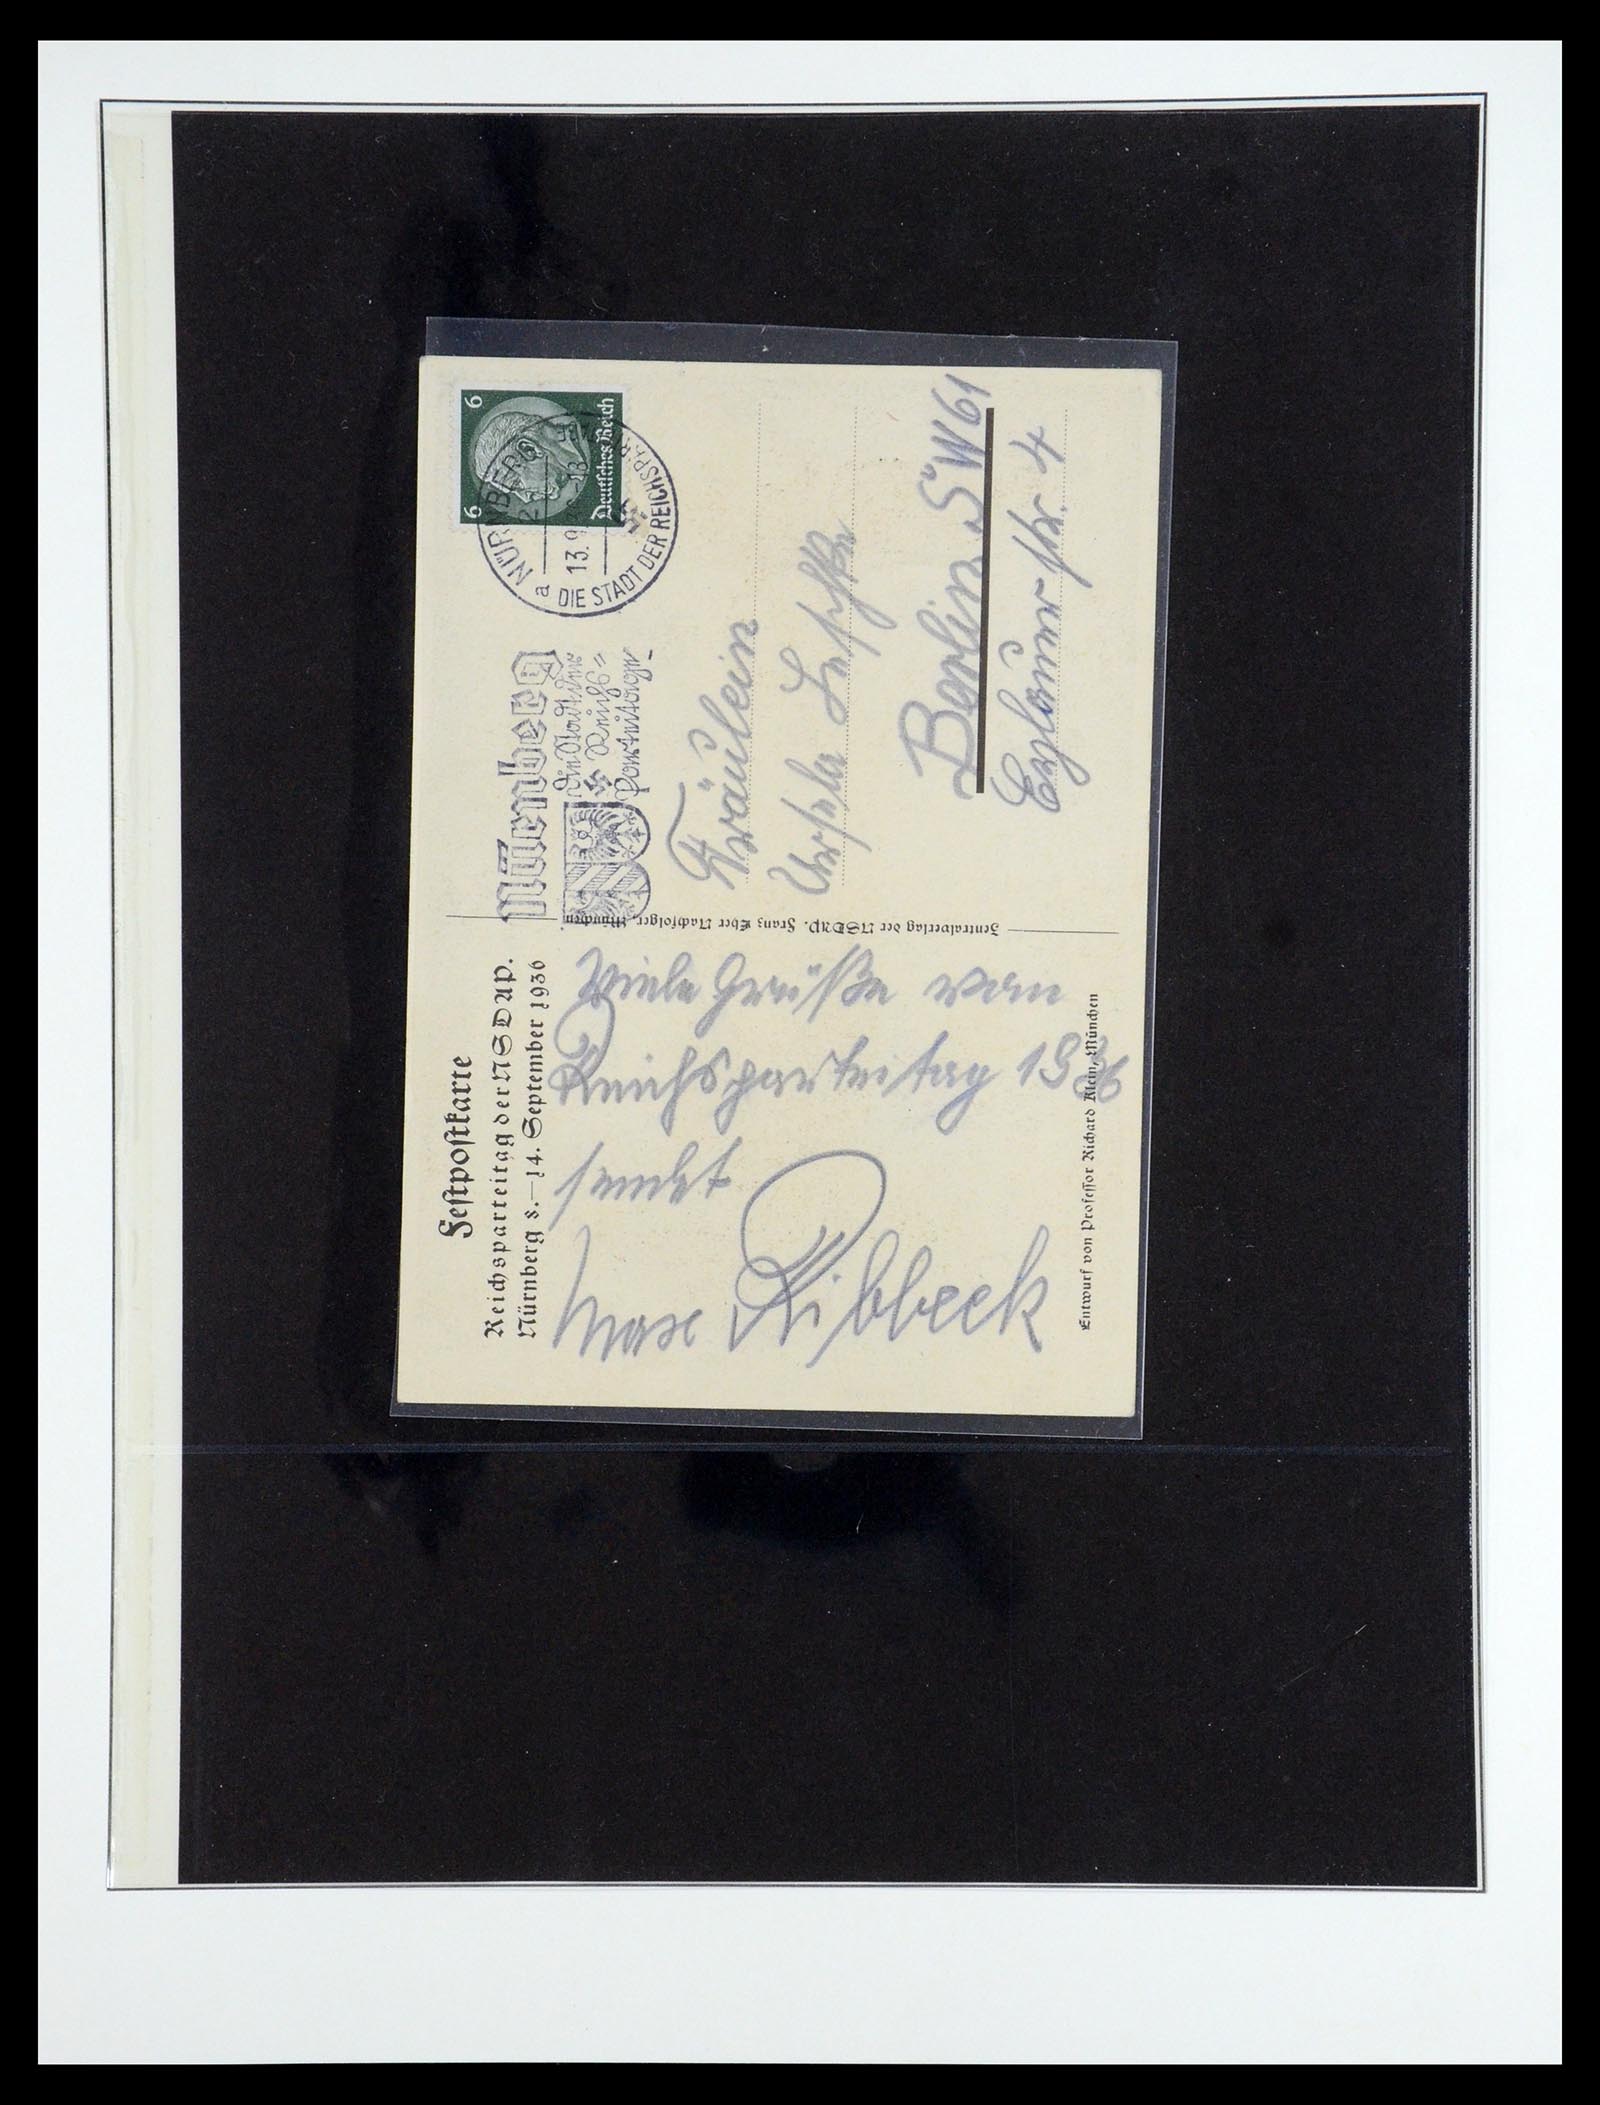 Festpostkarte
Reichsparteitag der NSDAP.
Nürnberg 8.—14. September 1936
Viele Grüße vom
Reichsparteitag 1936
sendet
Max Ribbeck
Entwurf von Professor Richard Klein, München
Zentralverlag der NSDAP. Franz Eher Nachfolger, München
Nürnberg
die Stadt der
Reichs=
parteitage
NÜRNBERG 2
a
13.9
DIE STADT DER REICHSPAR
6 6
Deutsches Reich
Fräulein
Ursula
Berlin SW 61
str. 4